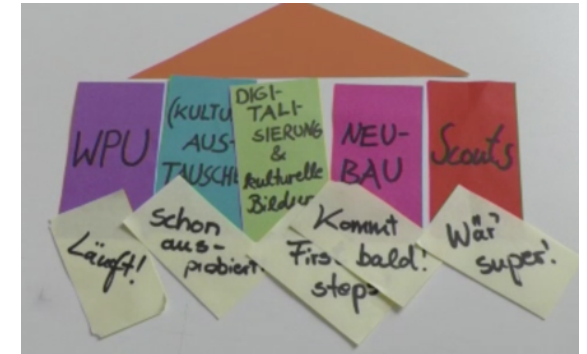 WPU
(KULTU
AUS-
TAUSCHE
DIGI-
TALI-
SIERUNG
&
kulturelle
Bildung
NEU-
BAU
Scouts
Läuft!
Schon
aus-
probiert!
First
steps
Kommt
bald!
Wär'
super!